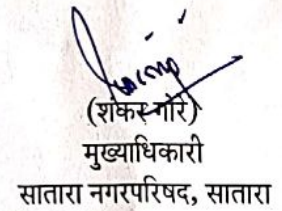 (शंकर गोरे)
मुख्याधिकारी
सातारा नगरपरिषद, सातारा